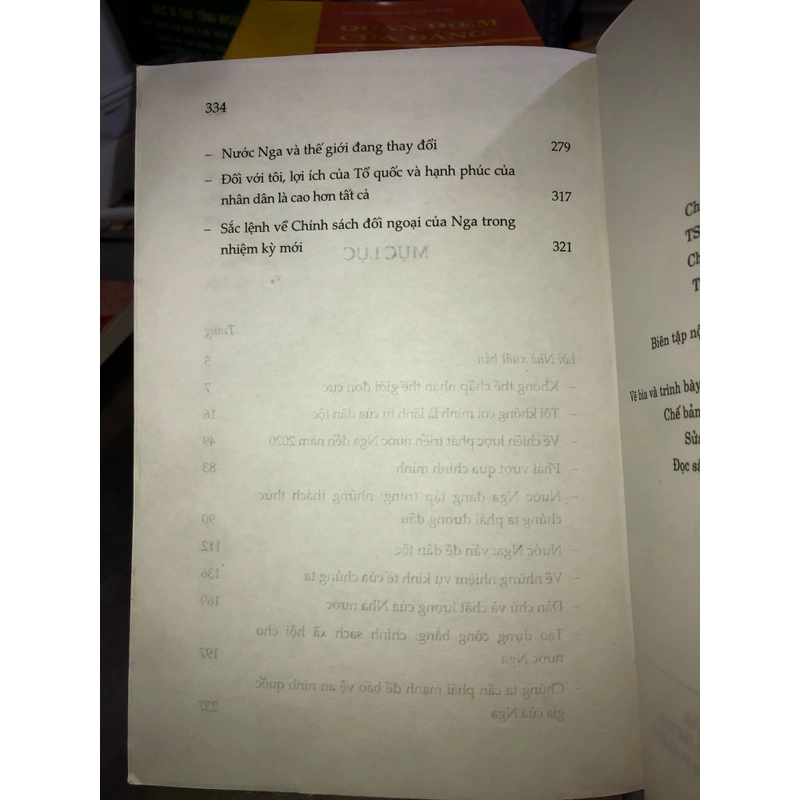 QUAN ĐIỂM
CỦA ĐẢNG
334
– Nước Nga và thế giới đang thay đổi 279
– Đối với tôi, lợi ích của Tổ quốc và hạnh phúc của
nhân dân là cao hơn tất cả 317
– Sắc lệnh về Chính sách đối ngoại của Nga trong
nhiệm kỳ mới 321
MỤC LỤC
Trang
Lời Nhà xuất bản 5
– Không thể chấp nhận thế giới đơn cực 7
– Tôi không coi mình là lãnh tụ của dân tộc 16
– Về chiến lược phát triển nước Nga đến năm 2020 49
– Phải vượt qua chính mình 83
– Nước Nga đang tập trung: những thách thức
chúng ta phải đương đầu 90
– Nước Nga: vấn đề dân tộc 112
– Về những nhiệm vụ kinh tế của chúng ta 136
– Dân chủ và chất lượng của Nhà nước 169
– Tạo dựng công bằng: chính sách xã hội cho
nước Nga 197
– Chúng ta cần phải mạnh để bảo vệ an ninh quốc
gia của Nga 237
Ch
TS
Ch
T
Biên tập nộ
Vẽ bìa và trình bày
Chế bản
Sửa
Đọc sá